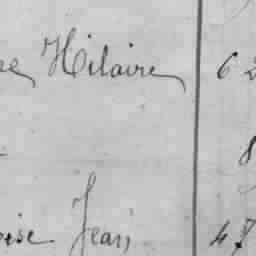 Hilaire 62
8
oise Jean 47